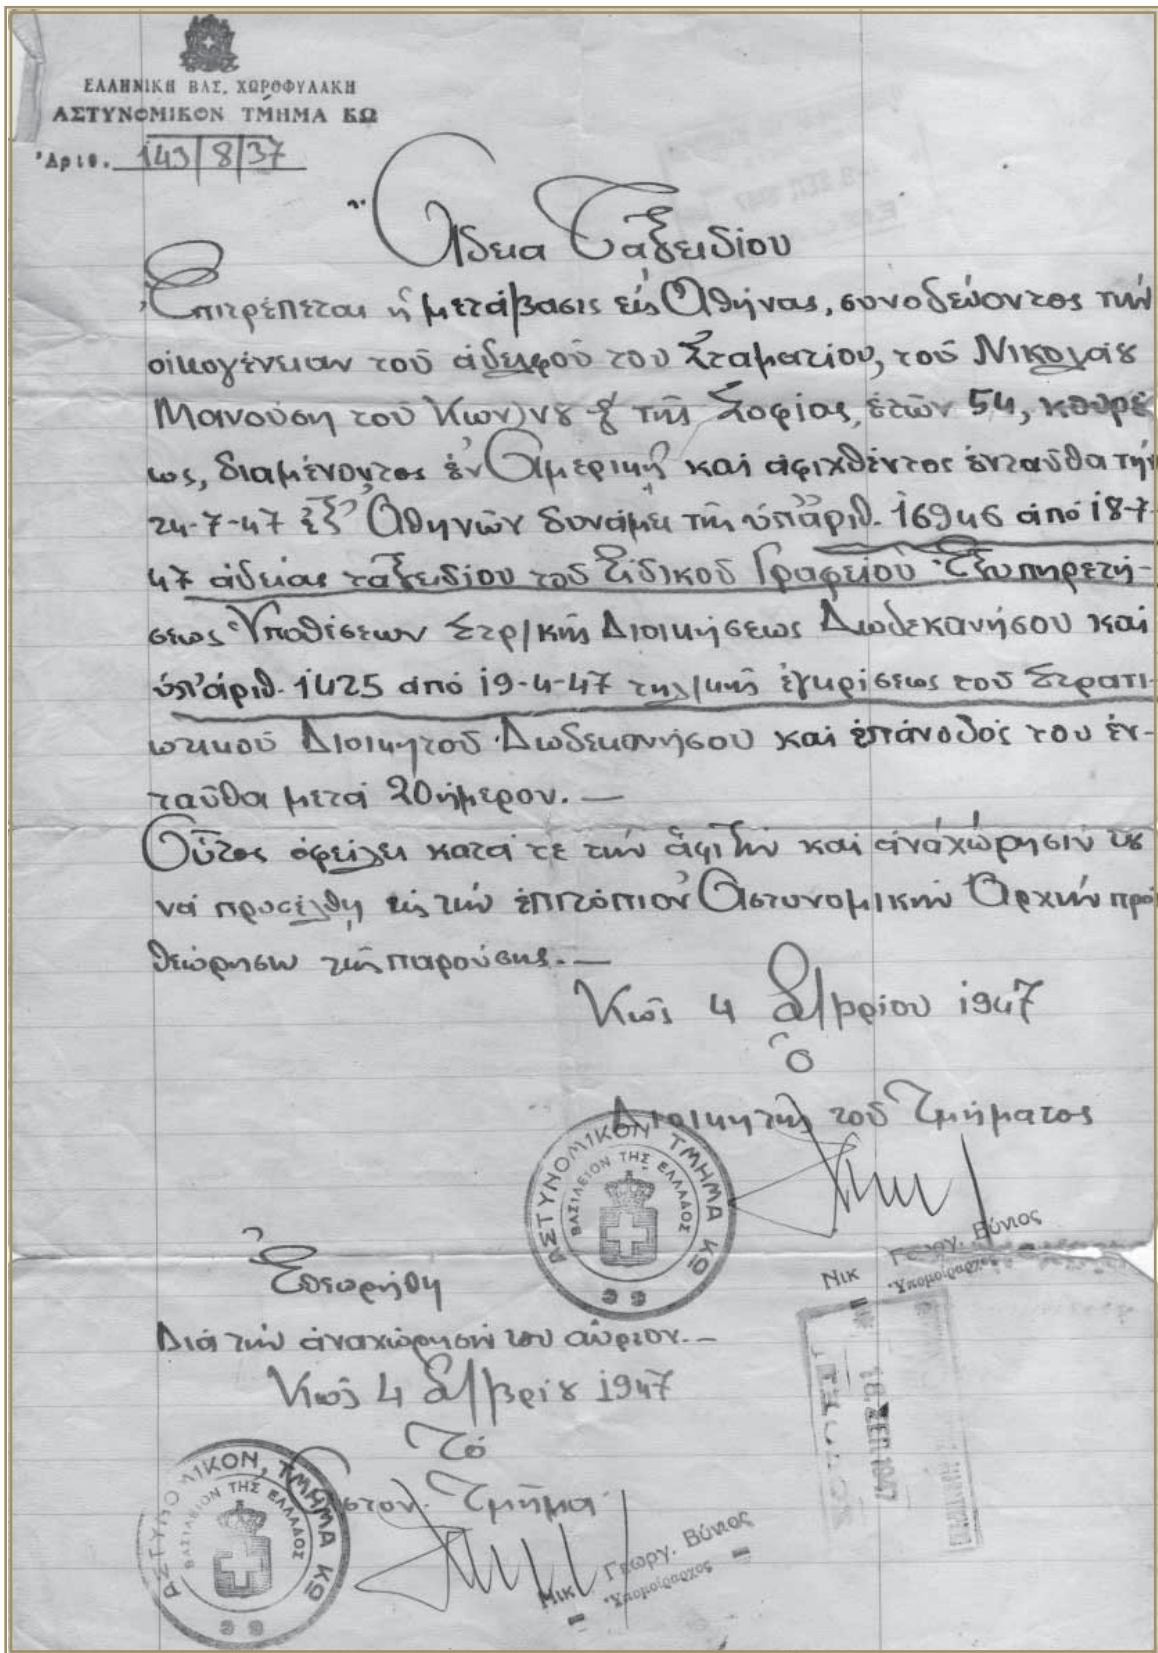 ΕΛΛΗΝΙΚΗ ΒΑΣ. ΧΩΡΟΦΥΛΑΚΗ
ΑΣΤΥΝΟΜΙΚΟΝ ΤΜΗΜΑ ΚΩ
Ἀριθ. 143/8/37
Ἄδεια Ταξειδίου
Ἐπιτρέπεται ἡ μετάβασις εἰς Ἀθήνας, συνοδεύοντος τὴν
οἰκογένειαν τοῦ ἀδελφοῦ του Σταματίου, τοῦ Νικολάου
Μανούση τοῦ Κων)νου & τῆς Σοφίας, ἐτῶν 54, κουρέ
ως, διαμένοντος ἐν Ἀμερικῇ καὶ ἀφιχθέντος ἐνταῦθα τήν
24-7-47 ἐξ Ἀθηνῶν δυνάμει τῆς ὑπ' ἀριθ. 16946 ἀπό 18-7-
47 ἀδείας ταξειδίου τοῦ Εἰδικοῦ Γραφείου Ἐξυπηρετή-
σεως Ὑποθέσεων Στρ/κῆς Διοικήσεως Δωδεκανήσου καί
ὑπ' ἀριθ. 1425 ἀπό 19-4-47 τηλ/κῆς ἐγκρίσεως τοῦ Στρατι-
ωτικοῦ Διοικητοῦ Δωδεκανήσου καί ἐπάνοδός του ἐν-
ταῦθα μετά 20ήμερον.—
Οὗτος ὀφείλει κατά τε τήν ἄφιξιν καί ἀναχώρησίν του
νά προσέλθῃ εἰς τήν ἐπιτόπιον Ἀστυνομικήν Ἀρχήν πρό
θεώρησιν τῆς παρούσης.—
Κῶς 4 7/βρίου 1947
Ὁ
Διοικητής τοῦ Τμήματος
ΑΣΤΥΝΟΜΙΚΟΝ ΤΜΗΜΑ ΚΩ
ΒΑΣΙΛΕΙΟΝ ΤΗΣ ΕΛΛΑΔΟΣ
Νικ Γεωργ. Βύνιος
Ἐθεωρήθη
Διά τήν ἀναχώρησίν του αὔριον.—
Κῶς 4 7/βρίου 1947
Τό
Ἀστυν. Τμῆμα
18. ΣΕΠ 1947
ΑΣΤΥΝΟΜΙΚΟΝ ΤΜΗΜΑ ΚΩ
ΒΑΣΙΛΕΙΟΝ ΤΗΣ ΕΛΛΑΔΟΣ
Νικ Γεωργ. Βύνιος